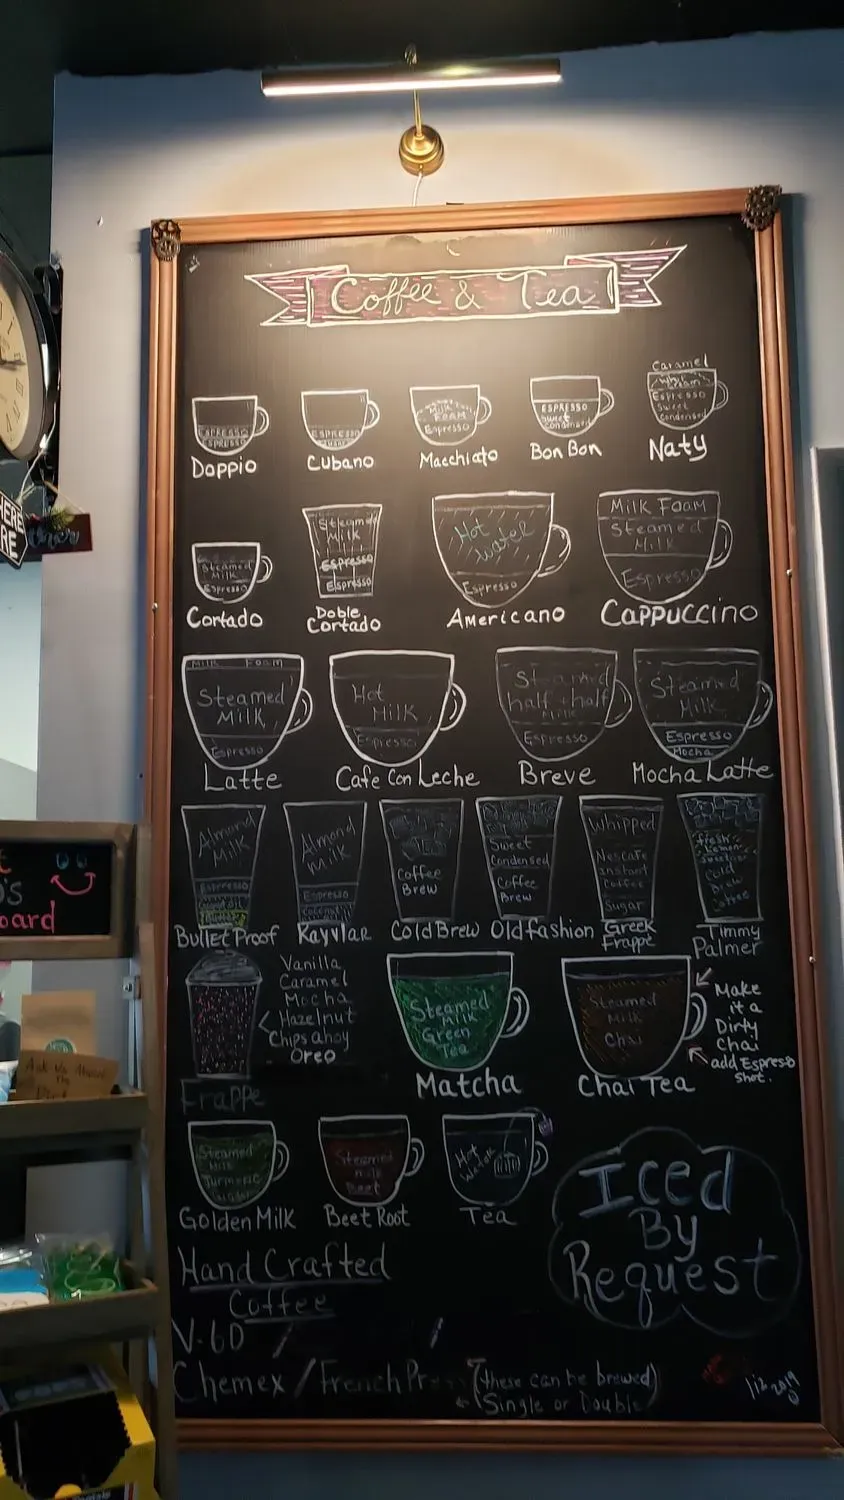 Coffee & Tea
ESPRESSO
ESPRESSO
Doppio
ESPRESSO
Cubano
Milk
FOAM
Espresso
Macchiato
ESPRESSO
Sweet
Condensed
Bon Bon
Caramel
Espresso
Sweet
Condensed
Naty
Steamed
Milk
Espresso
Cortado
Steamed
Milk
Espresso
Espresso
Doble
Cortado
Hot
water
Espresso
Americano
Milk Foam
Steamed
Milk
Espresso
Cappuccino
Milk Foam
Steamed
Milk
Espresso
Latte
Hot
Milk
Espresso
Cafe Con Leche
Steamed
half + half
Milk
Espresso
Breve
Steamed
Milk
Espresso
Mocha
Mocha Latte
Almond
Milk
Espresso
Bullet Proof
Almond
Milk
Espresso
Kayvlar
Coffee
Brew
Cold Brew
Sweet
Condensed
Coffee
Brew
Old fashion
Whipped
Nescafe
Instant
Coffee
Sugar
Greek
Frappe
fresh
Lemon
Cold
Brew
Coffee
Timmy
Palmer
Vanilla
Caramel
Mocha
Hazelnut
Chips ahoy
Oreo
Frappe
Steamed
Milk
Green
Tea
Matcha
Steamed
Milk
Chai
Chai Tea
Make
it a
Dirty
Chai
add Espresso
Shot.
Steamed
Milk
Turmeric
Golden Milk
Steamed
Milk
Beet
Beet Root
Hot
Water
Tea
Iced
By
Request
Hand Crafted
Coffee
V-60 / /
Chemex / French Pr
(these can be brewed)
Single or Double
liz 2019
HERE
RE
oard
Ask Us About